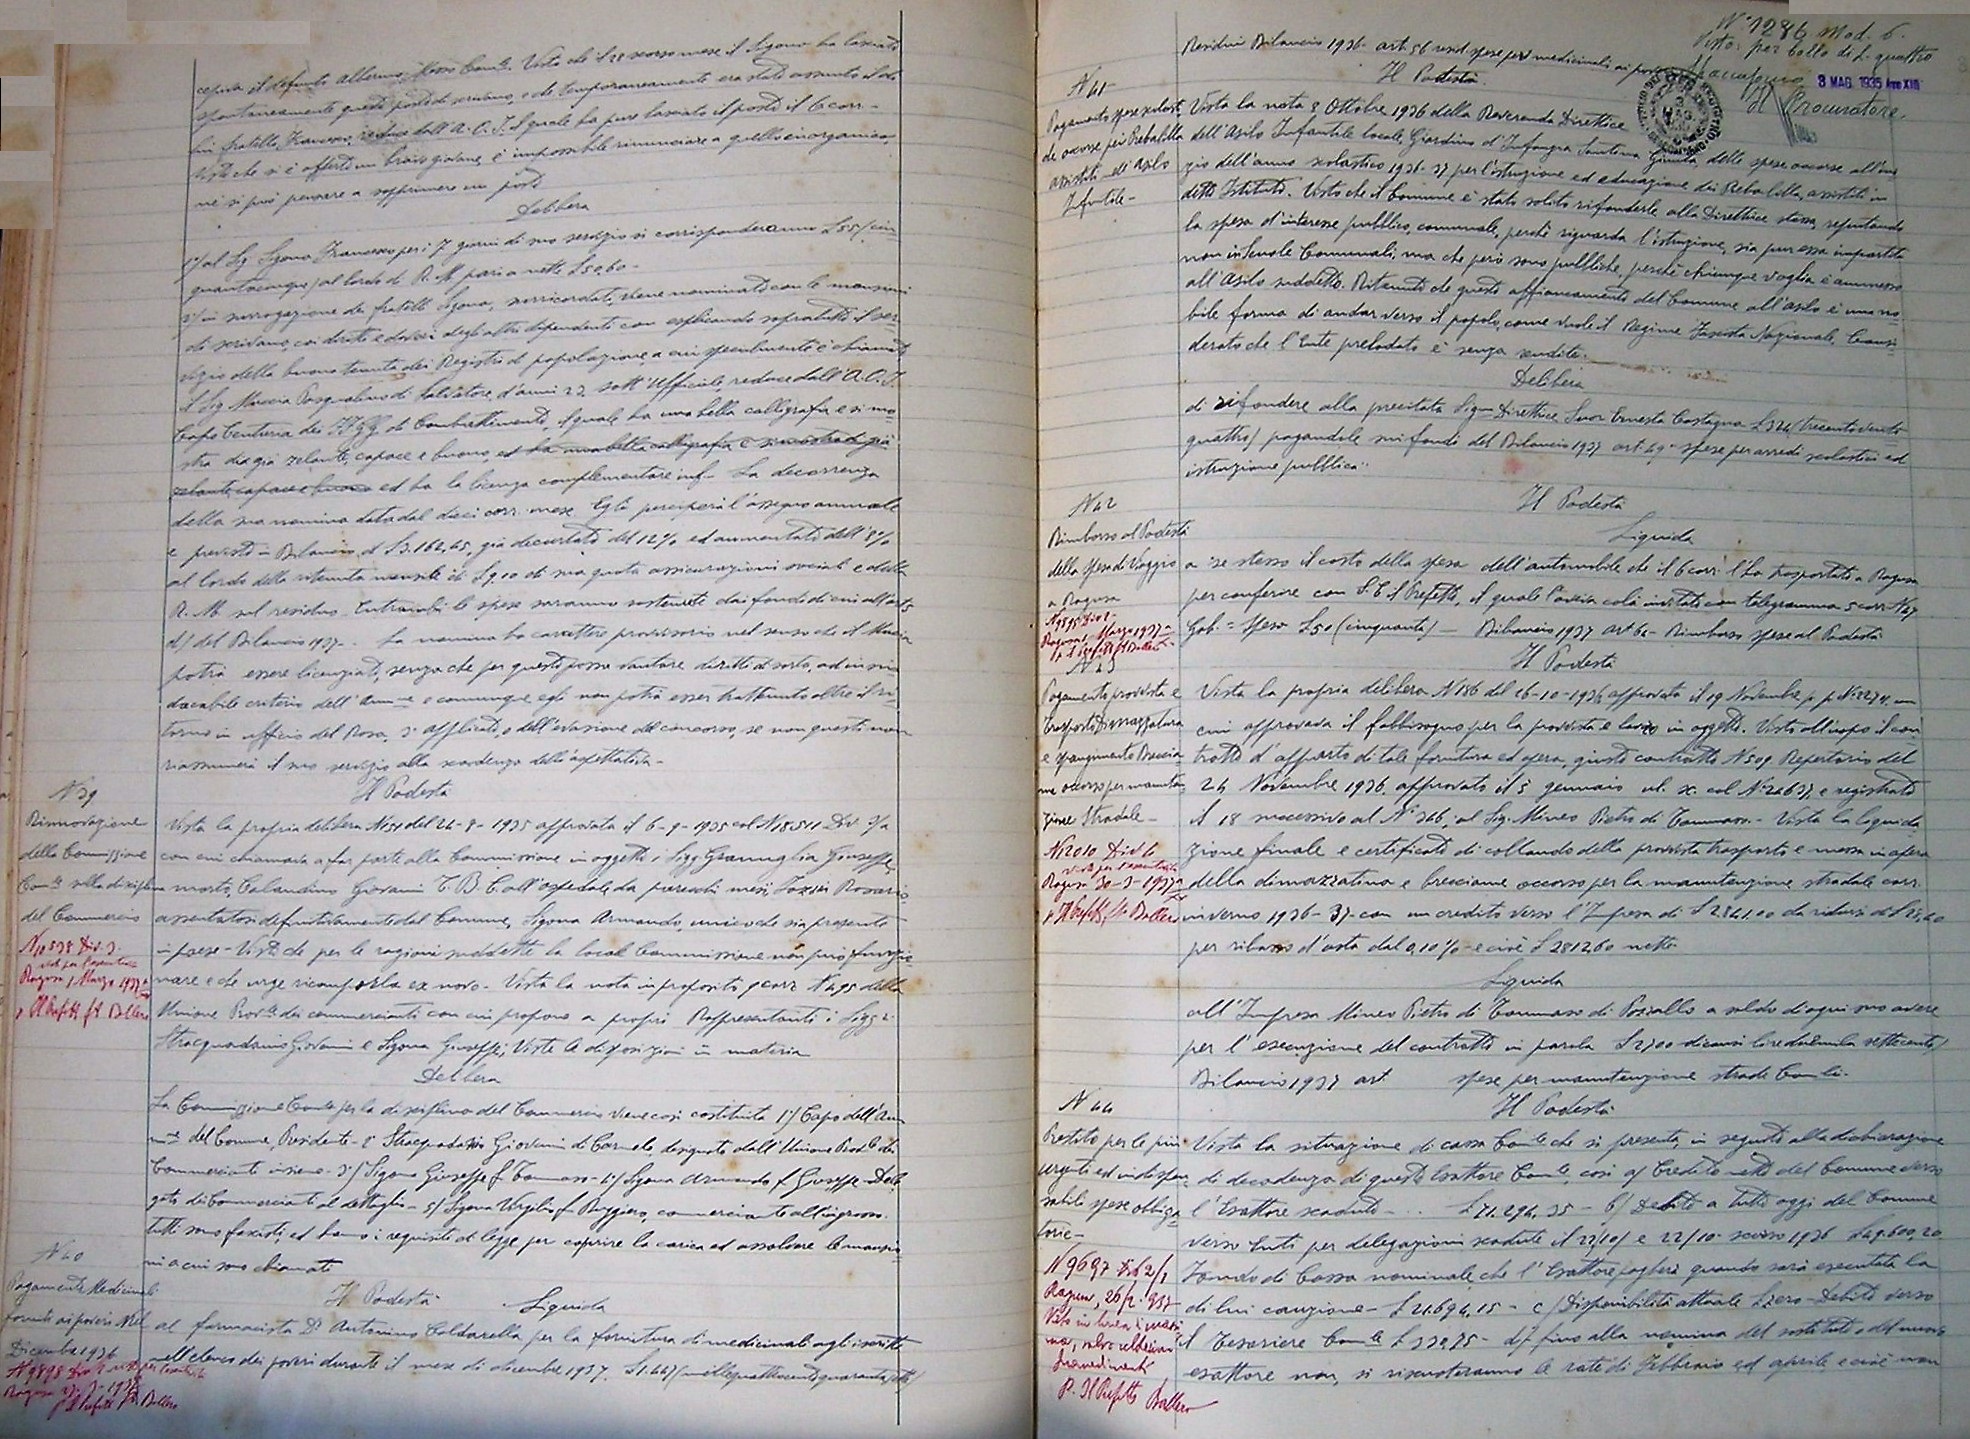 spontaneamente questo posto di scrivano, e che temporaneamente era stato assunto il di
lui fratello Francesco, reduce dall'A.O.I. il quale ha pure lasciato il posto il 6 corr.-
Visto che si è offerto un bravo giovane, è impossibile rinunciare a quello in organico,
né si può pensare a sopprimere un posto
Delibera
1°/ al Sig. Sgona Francesco per i 7 giorni di suo servizio si corrisponderanno £ 55/ cin-
quantacinque/ al lordo di R.M. pari a nette £ 50,60-
2°/ in surrogazione dei fratelli Sgona, viene nominato con le mansioni
di scrivano, coi diritti e doveri degli altri dipendenti con esplicando sopratutto il ser-
vizio della buona tenuta dei Registri di popolazione, a cui specialmente è chiamato
il Sig. Muccia Pasqualino di Salvatore, d'anni 23, sott'Ufficiale, reduce dall'A.O.I.
Capo Centuria dei FF.GG. di Combattimento, il quale ha una bella calligrafia e si mo-
stra di già zelante, capace e buono, ed ha una bella calligrafia e si mostra di già
zelante capace e buono ed ha la licenza complementare inf- La decorrenza
della sua nomina data dal dieci corr. mese. Egli percepirà l'assegno annuale
e previsto in Bilancio di £ 3.162,45, già decurtato del 12% ed aumentato dell'8%
al lordo della ritenuta mensile di £ 9,10 di sua quota assicurazioni sociali e della
R.M. sul residuo. Entrambi le spese saranno sostenute dai fondi di cui all'art.
del Bilancio 1937-. La nomina ha carattere provvisorio nel senso che il Muccia
potrà essere licenziato, senza che per questo possa vantare diritti di sorta, ad insin-
dacabile criterio dell'Amm.ne e comunque egli non potrà esser trattenuto oltre il ri-
torno in ufficio del Rosa, 3° applicato, o dell'evasione del concorso, se non questi non
riassumerà il suo servizio alla scadenza dell'aspettativa-
N 39
Il Podestà
Rinnovazione
della Commissione
Com.le sulla disciplina
del Commercio
Vista la propria delibera N 51 del 24-8-1935 approvata il 6-9-1935 col N 18511 Div. 3/a
con cui chiamava a far parte alla Commissione in oggetto i Sigg. Giuseppe,
morto, Calandino Giovanni all'ospedale da parecchi mesi, Rosario,
assentatosi definitivamente dal Comune, Sgona Armando, unico che sia presente
in paese- Visto che per le ragioni suddette la local Commissione non può funzio-
nare e che urge ricomporla ex novo- Vista la nota in proposito 9 corr. N 495 della
Unione Prov.le dei commercianti con cui propone a propri Rappresentanti i Sigg.ri
Stracquadanio Giovanni e Sgona Giuseppe; Viste le disposizioni in materia
Delibera
La Commissione Com.le per la disciplina del Commercio viene così costituita 1°/ Capo dell'Am-
m.ne del Comune, Presidente- 2° Stracquadanio Giovanni di Carmelo, designato dall'Unione Prov.le dei
Commercianti insieme- 3°/ Sgona Giuseppe f. Tommaso- 4°/ Sgona Armando f. Giuseppe- Dele-
gato dei Commercianti al dettaglio- 5°/ Sgona Virgilio f. Ruggiero, commerciante all'ingrosso.
tutti sono fascisti ed hanno i requisiti di legge per coprire la carica ed assolvere le mansio-
ni a cui sono chiamati
N 40
Pagamento Medicinali
forniti ai poveri Nel
Dicembre 1936
Il Podestà Liquida
al farmacista Dr Antonino Coldarella per la fornitura di medicinali agli iscritti
nell'elenco dei poveri durante il mese di dicembre 1937. £ 1.447/ (millequattrocentoquarantasette)
N° 1286 Mod. 6.
Visto: per bollo di L. quattro
3 MAG. 1935 Anno XIII
Il Procuratore.
Residui Bilancio 1936- art. 56 resid. spese per medicinali ai poveri
N 41-
Il Podestà
Pagamento spese scolasti-
che occorse per i Rebalilla
assistiti all'Asilo
Infantile-
Vista la nota 8 Ottobre 1936 della Reverenda Direttrice
dell'Asilo Infantile locale, Giardino d'Infanzia delle spese occorse all'ini-
zio dell'anno scolastico 1936-37, per l'istruzione ed educazione dei Rebalilla, assistiti in
detto Istituto. Visto che il Comune è stato solito rifonderle alla Direttrice stessa, reputando
la spesa d'interesse pubblico, comunale, perchè riguarda l'istruzione, sia pur essa impartita
non in Scuole Comunali, ma che però sono pubbliche, perchè chiunque voglia è ammesso
all'Asilo suddetto. Ritenuto che questo affiancamento del Comune all'asilo è una no-
bile forma di andar verso il popolo, come vuole il Regime Fascista Nazionale, Consi-
derato che l'Ente prelodato è senza rendite.
Delibera
di rifondere alla precitata Sig.ra Direttrice Suor Ernesta Castagna £ 324/ trecentoventi-
quattro/ pagandole sui fondi del Bilancio 1937 art. 49- spese per arredi scolastici ed
istruzione pubblica:
N 42
Il Podestà
Liquida
Rimborso al Podestà
della spesa di Viaggio
a Ragusa
a se stesso il costo della spesa dell'automobile che il 6 corr. l'ha trasportato a Ragusa
per conferire con S.E. il Prefetto, il quale l'aveva colà invitato con telegramma 5 corr. N 47
Gab. = spesa £ 50 (cinquanta)- Bilancio 1937 art 6- Rimborso spese al Podestà
Il Podestà
Pagamento provvista e
trasporto Dimazzatura
e spargimento Brescia-
me occorso per manuten-
zione Stradale-
Vista la propria delibera N 186 del 26-10-1936, approvata il 19 Novembre p.p. N 32274, con
cui approvava il fabbisogno per la provvista e lavoro in oggetto. Visto all'uopo il con-
tratto d'appalto di tale fornitura ed opera, giusto contratto N 509 Repertorio del
24 Novembre 1936, approvato il 5 gennaio u.s. col N° 24637 e registrato
il 18 successivo al N° 366, al Sig. Mineo Pietro di Tommaso- Vista la liquida-
zione finale e certificato di collaudo della provvista trasporto e messa in opera
della dimazzatura e bresciame occorso per la manutenzione stradale corr.
inverno 1936-37- con un credito verso l'Impresa di £ 2841.00 da ridursi di £ 28,40
per ribasso d'asta dal 0,10%- e cioè £ 2812.60 nette
Liquida
all'Impresa Mineo Pietro di Tommaso di Pozzallo a saldo di ogni suo avere
per l'esecuzione del contratto in parola £ 2700- dicansi lire duemila settecento/
Bilancio 1937 art. spese per manutenzione strade Com.li.
N 44
Il Podestà
Prestito per le più
urgenti ed indispen-
sabili spese obbliga-
torie-
Vista la situazione di cassa Com.le che si presenta, in seguito alla dichiarazione
di decadenza di questo Esattore Com.le, così a/ Credito netto del Comune verso
l'Esattore scaduto- £ 71.294,35- b/ Debito a tutt'oggi del Comune
verso Enti per delegazioni scadute il 22/10 scorso 1936 £ 49.600,20
Fondo di Cassa nominale, che l'Esattore pagherà quando sarà esecutata la
di lui cauzione- £ 21.694,15- c/ Disponibilità attuale £ zero- Debito verso
il Tesoriere Com.le £ 339,75- d/ fino alla nomina del sostituto o del nuovo
esattore non si riscuoteranno le rate di Febbraio ed aprile, e cioè non
N 9697 Div 2/1
Ragusa, 26/2-937
P. Il Prefetto Ballero